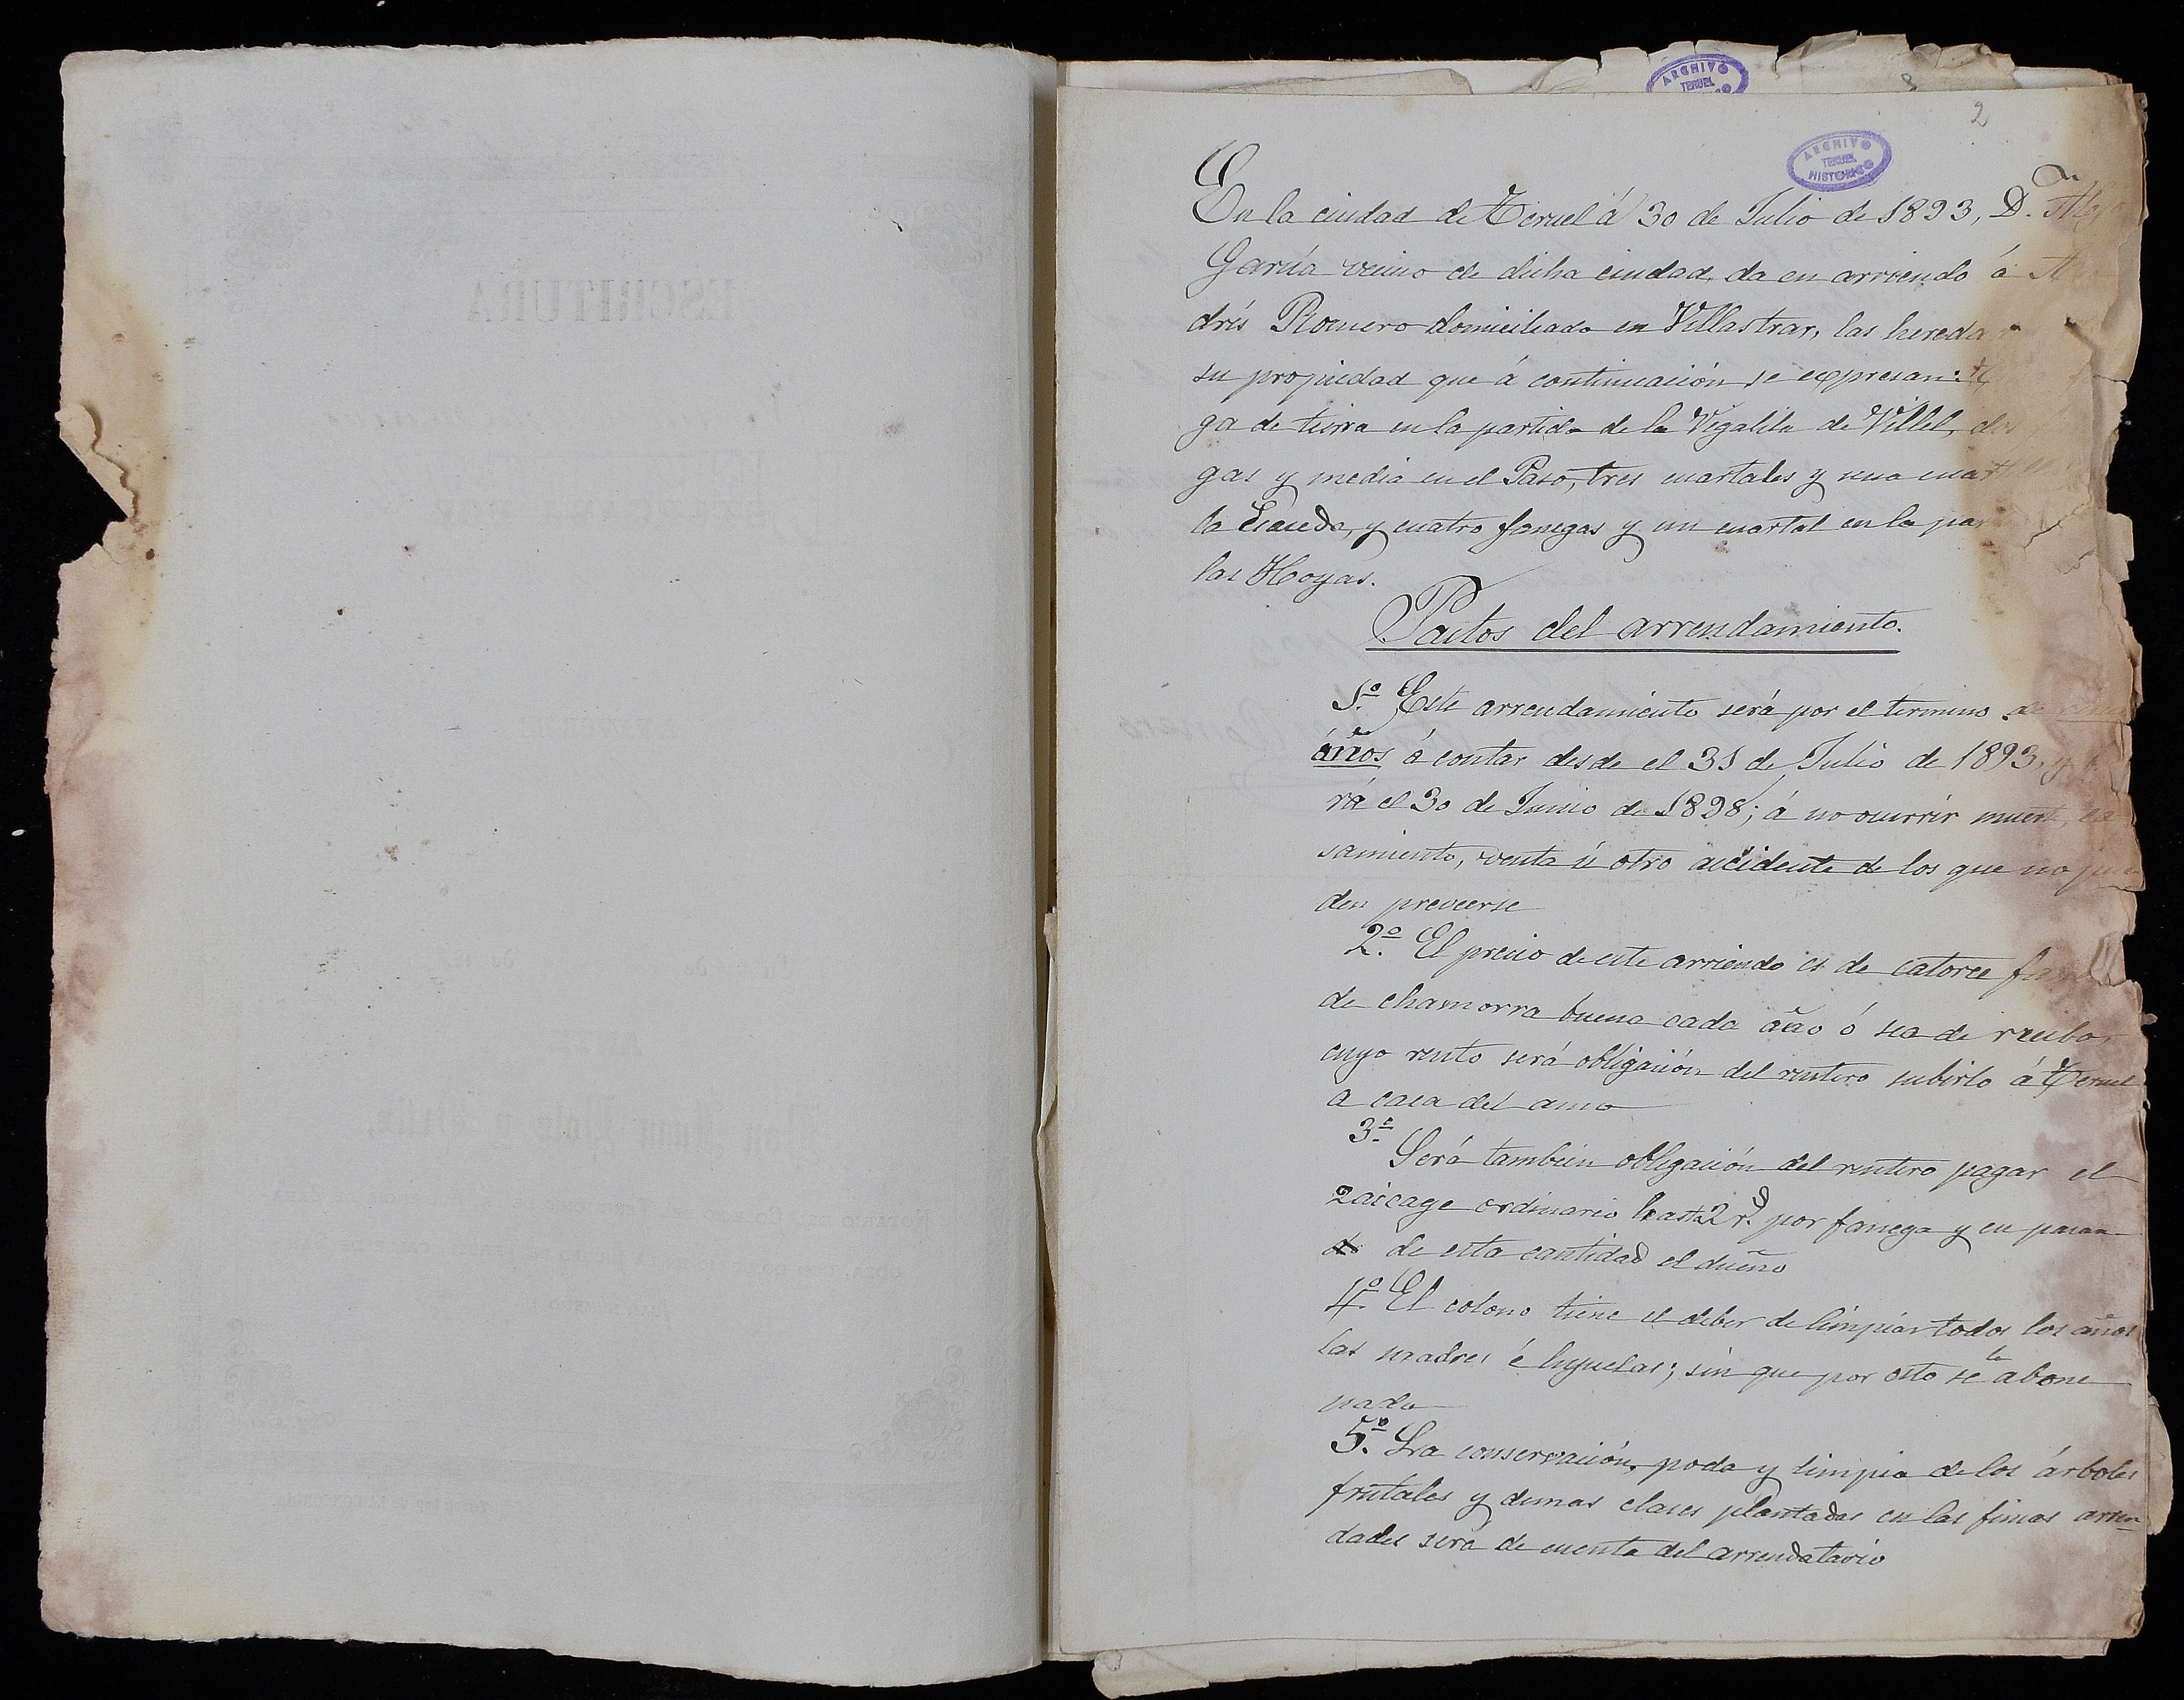 ARCHIVO
TERUEL
2
ARCHIVO
TERUEL
HISTORICO
En la ciudad de Teruel á 30 de Julio de 1893, D.
García vecino de dicha ciudad, da en arriendo á
drés Romero domiciliado en Villastrar, las hereda
su propiedad que á continuación se expresan:
ga de tierra en la partida de la Vegalita de Villel, dos
gas y media en el Paso, tres cuartales y una cuar
la y cuatro fanegas y un cuartal en la par
las Hoyas.
Pactos del arrendamiento.
1.º Este arrendamiento será por el término de
años á contar desde el 31 de Julio de 1893, y
rá el 30 de Junio de 1898; á no ocurrir muerte, ca
samiento, venta ú otro accidente de los que no pue
den preveerse
2.º El precio de este arriendo es de catorce
de chamorra buena cada año ó sea de recibo,
cuyo rento será obligación del rentero subirlo á Teruel
a casa del amo
3.º Será tambien obligación del rentero pagar el
zaicage ordinario hasta 2 r.s por fanega y en pasan
do de esta cantidad el dueño
4.º El colono tiene el deber de limpiar todos los años
las madres é hijuelas; sin que por esto se le abone
nada
5.º La conservación, poda y limpia de los árboles
frutales y demas clases plantadas en las fincas arren
dades será de cuenta del arrendatario
ESCRITURA